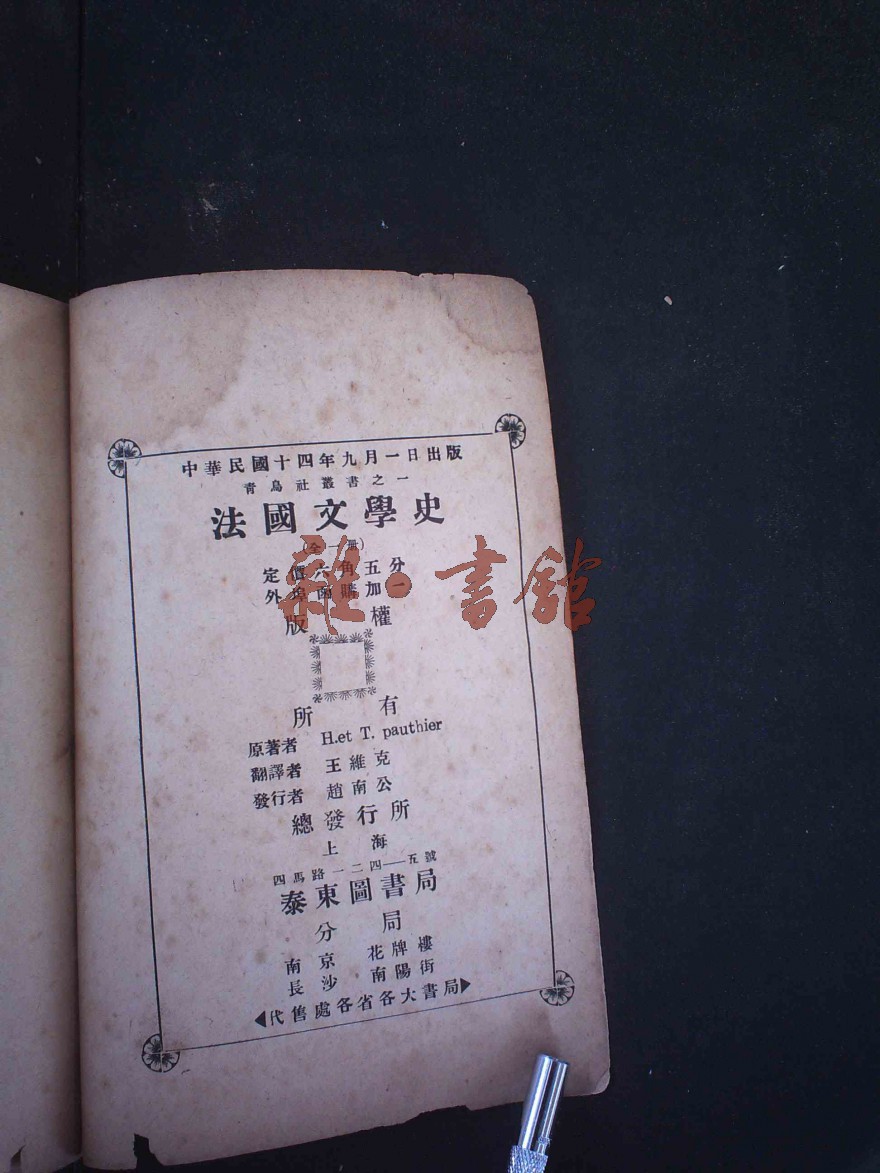 中華民國十四年九月一日出版
青鳥社叢書之一
法國文學史
(全一册)
定價六角五分
外埠函購加一
版權
所有
原著者 H.et T. pauthier
翻譯者 王維克
發行者 趙南公
總發行所
上海
四馬路一二四—五號
泰東圖書局
分局
南京 花牌樓
長沙 南陽街
代售處各省各大書局
雜·書館